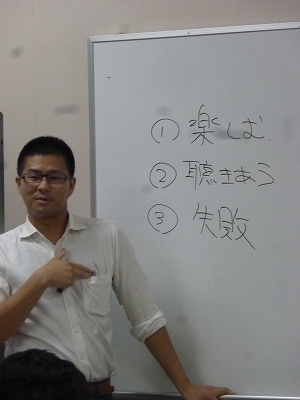 ① 楽しむ.
② 聴きあう
③ 失敗